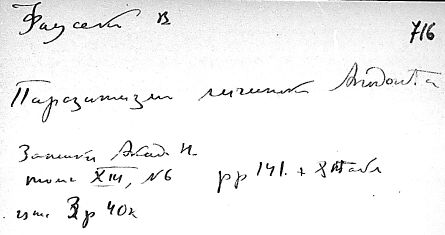 Фаусек В
716
Паразитизм личинок Anodonta
Записки Акад Н.
томъ XIII, N6 pp 141. + 8 табл
цѣна 3р 40к